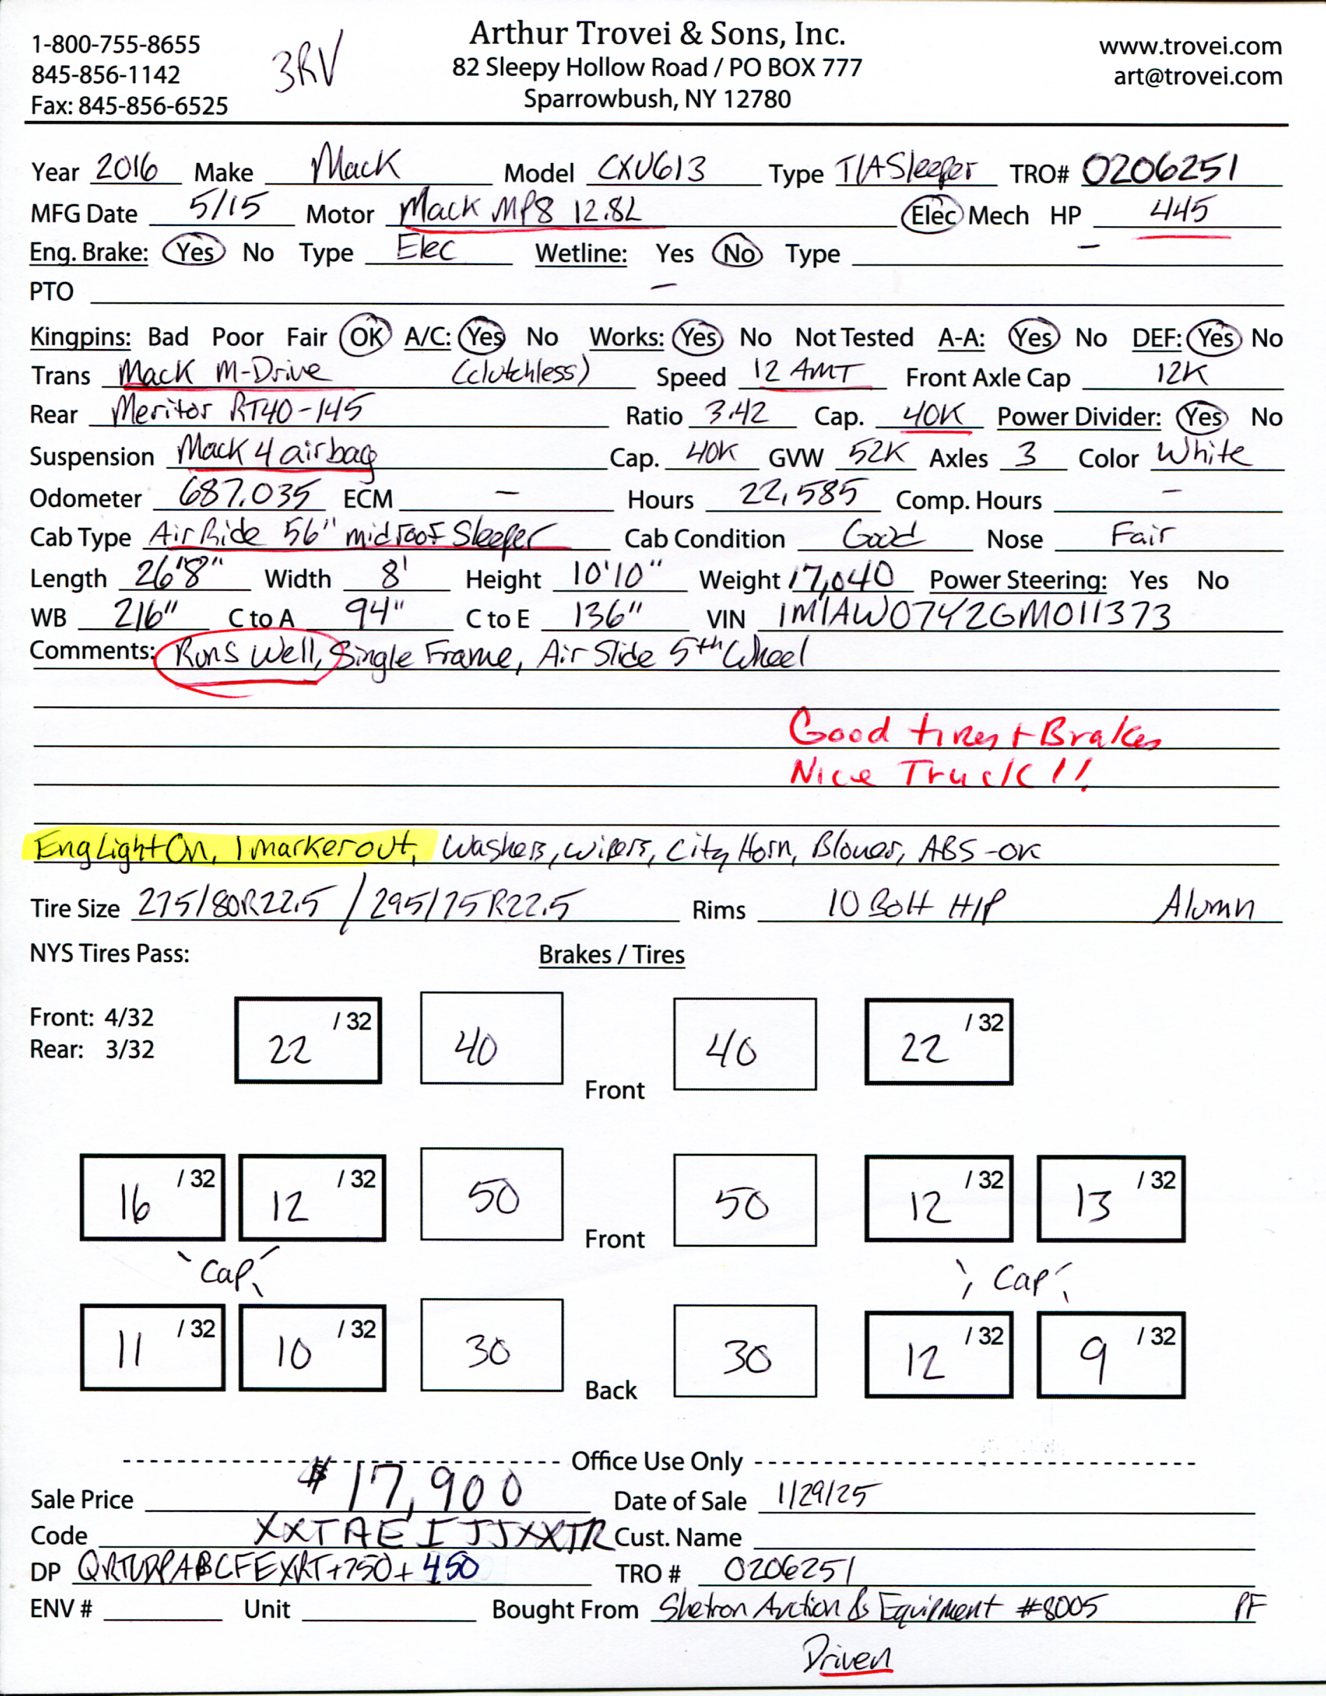 1-800-755-8655
845-856-1142
Fax: 845-856-6525
3RV
Arthur Trovei & Sons, Inc.
82 Sleepy Hollow Road / PO BOX 777
Sparrowbush, NY 12780
www.trovei.com
art@trovei.com
Year 2016 Make Mack Model CXU613 Type T/A Sleeper TRO# 0206251
MFG Date 5/15 Motor Mack MP8 12.8L Elec Mech HP 445
Eng. Brake: Yes No Type Elec Wetline: Yes No Type –
PTO –
Kingpins: Bad Poor Fair OK A/C: Yes No Works: Yes No Not Tested A-A: Yes No DEF: Yes No
Trans Mack M-Drive (clutchless) Speed 12 AMT Front Axle Cap 12K
Rear Meritor RT40-145 Ratio 3.42 Cap. 40K Power Divider: Yes No
Suspension Mack 4 airbag Cap. 40K GVW 52K Axles 3 Color White
Odometer 687,035 ECM – Hours 22,585 Comp. Hours –
Cab Type Air Ride 56" midroof Sleeper Cab Condition Good Nose Fair
Length 26'8" Width 8' Height 10'10" Weight 17,040 Power Steering: Yes No
WB 216" C to A 94" C to E 136" VIN 1M1AW07Y2GM011373
Comments: Runs Well, Single Frame, Air Slide 5th Wheel
Good tires + Brakes
Nice Truck!!
Eng Light On, 1 marker out, Washers, Wipers, City Horn, Blower, ABS - OK
Tire Size 275/80R22.5 / 295/75R22.5 Rims 10 Bolt H/P Alumn
NYS Tires Pass: Brakes / Tires
Front: 4/32
Rear: 3/32
22 /32 40 Front 40 22 /32
16 /32 12 /32 50 Front 50 12 /32 13 /32
Cap Cap
11 /32 10 /32 30 Back 30 12 /32 9 /32
Office Use Only
Sale Price $17,900 Date of Sale 1/29/25
Code XXTAEIJJXXTR Cust. Name
DP +750+450 TRO # 0206251
ENV # Unit Bought From Equipment #8005 PF
Driven